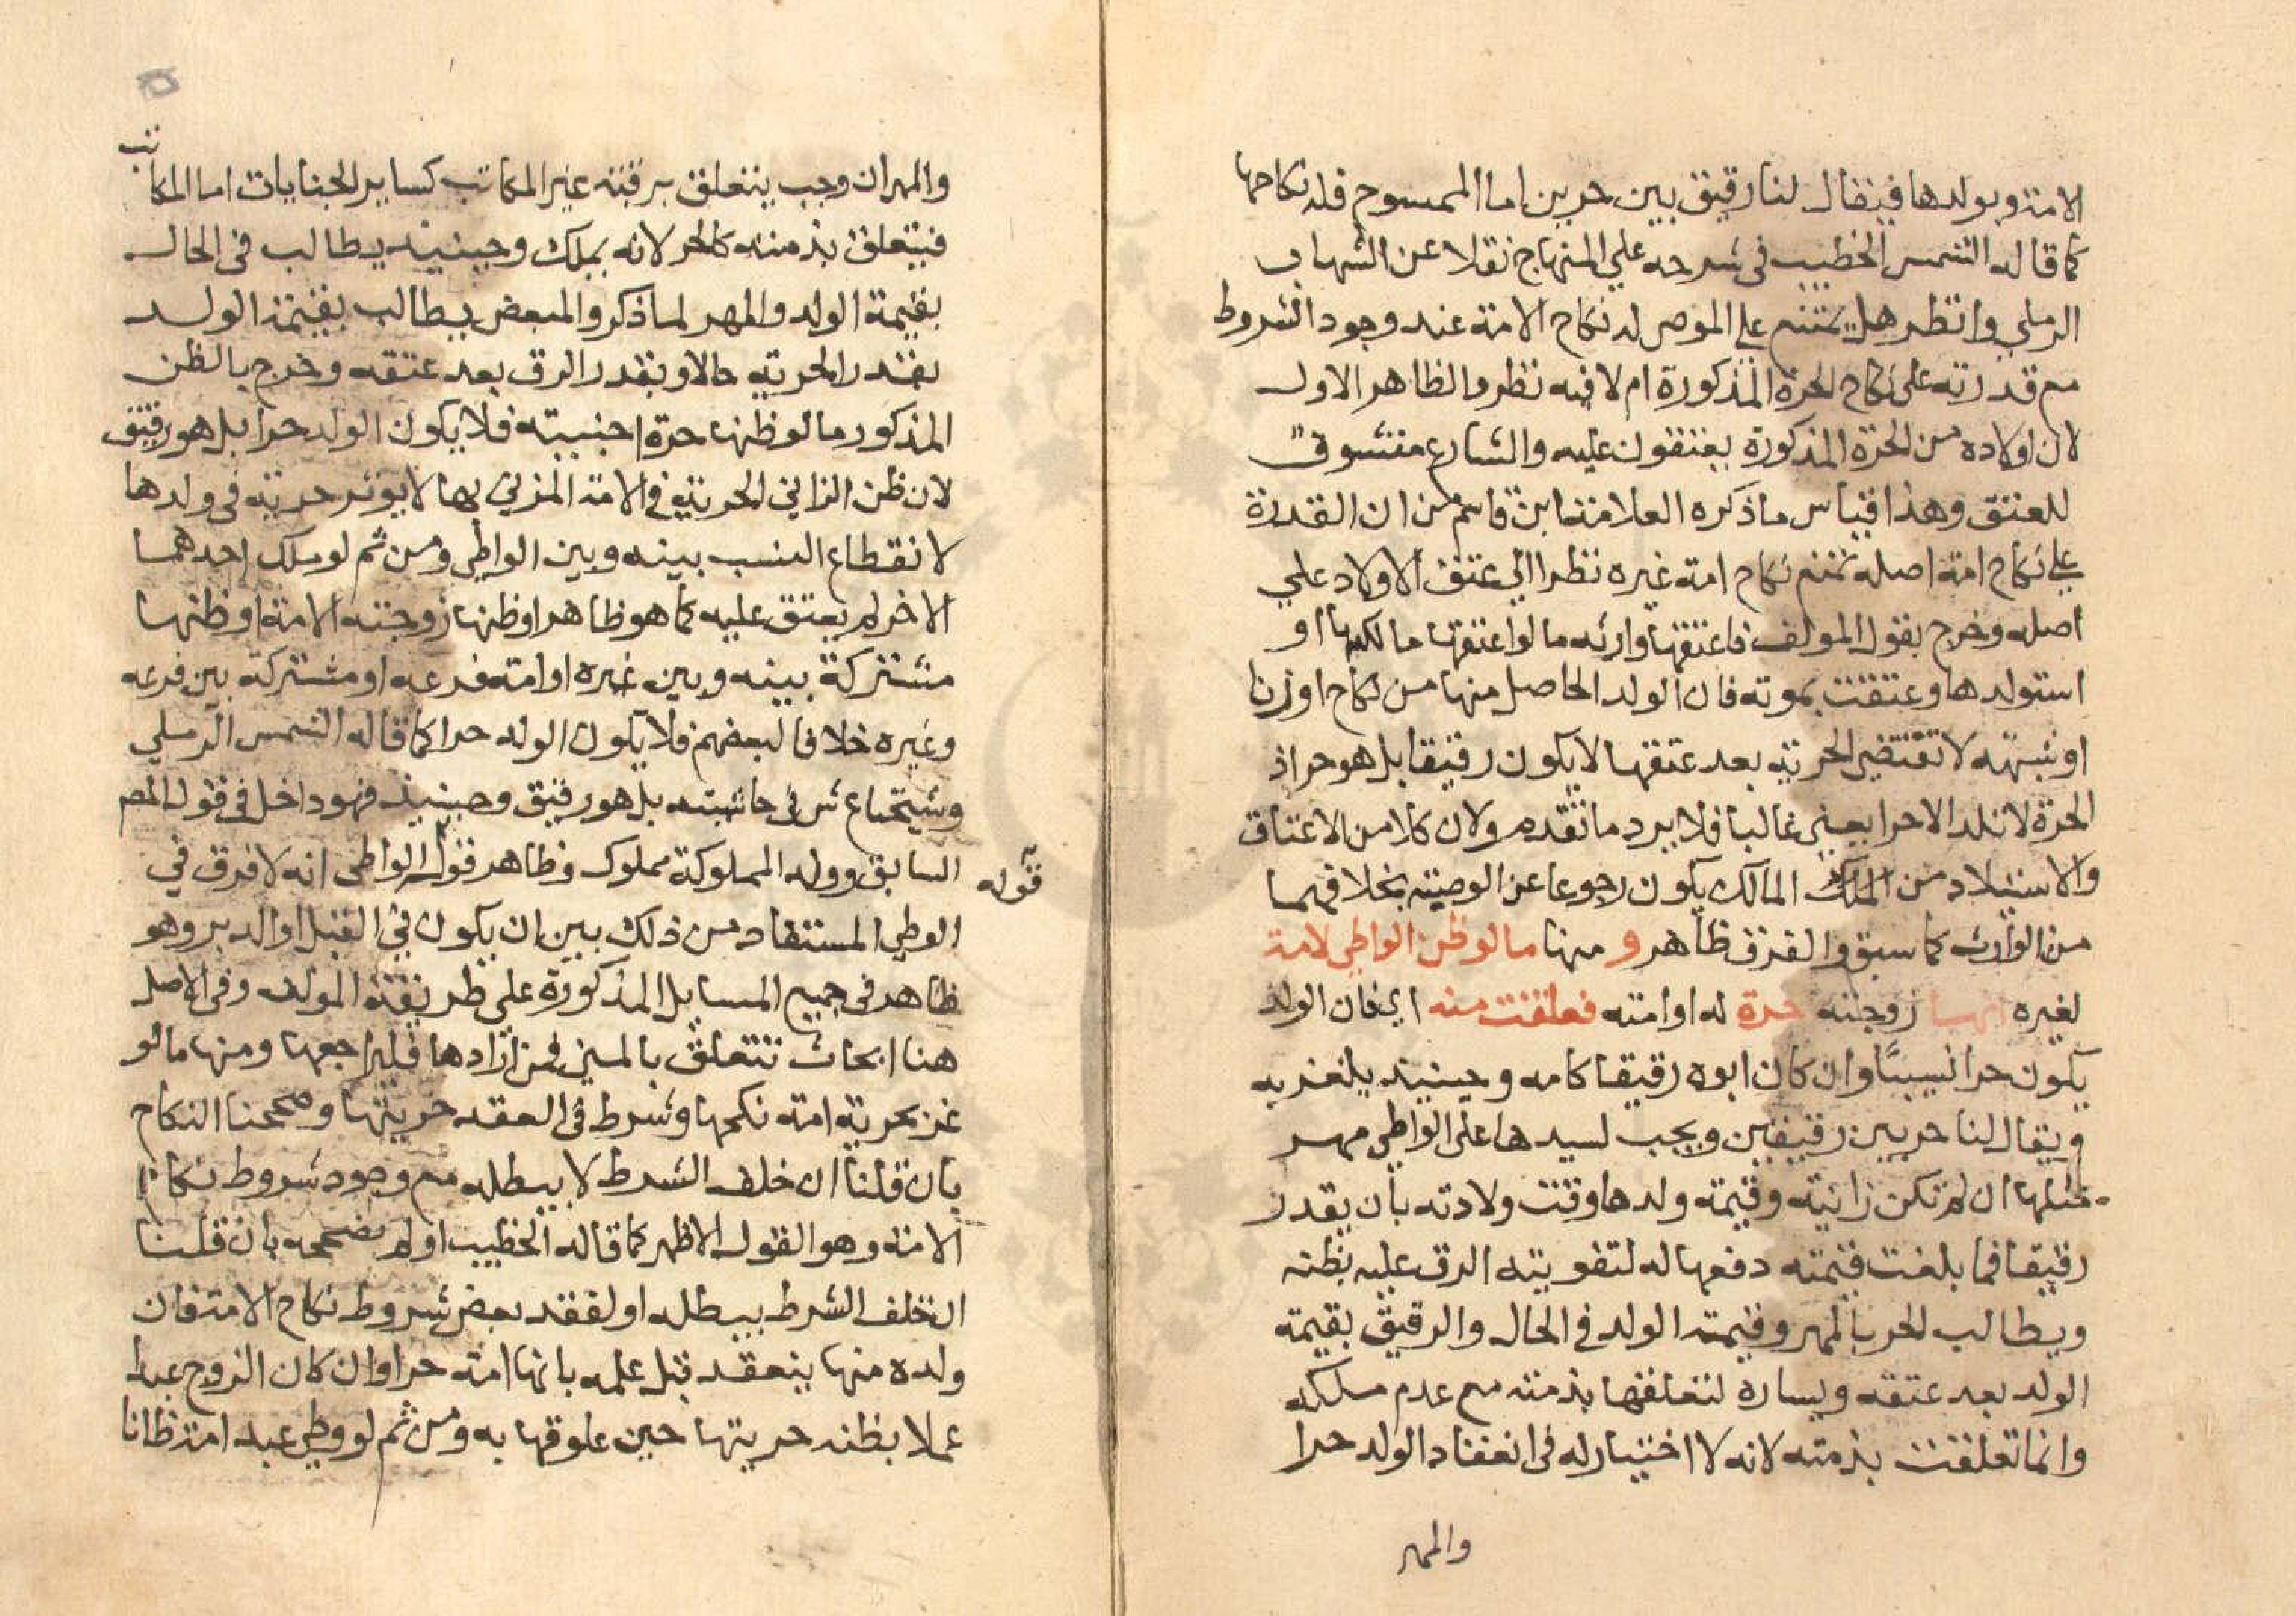 الامة وبولدها فيقال لنا رقيق بين حرين اما الممسوح فله نكاحها
كما قاله الشمس الخطيب في شرحه علي المنهاج نقلا عن الشهاب
الرملي وانظر هل يمتنع علي الموصى له نكاح الامة عند وجود الشروط
مع قدرته على نكاح الحرة المذكورة ام لا فيه نظر والظاهر الاول
لان اولاده من الحرة المذكورة يعتقون عليه والشارع متشوف
للعتق وهذا قياس ما ذكره العلامة ابن قاسم من ان القدرة
علي نكاح امة اصله تمنع نكاح امة غيره نظرا الي عتق الاولاد علي
اصله وخرج بقول المولف فاعتقها وارثه ما لو اعتقها مالكها او
استولدها وعتقت بموته فان الولد الحاصل منها من نكاح او زنا
او شبهة لا تقتضي الحرية بعد عتقها لا يكون رقيقا بل هو حر اذ
الحرة لا تلد الا حرا يعني غالبا فلا يرد ما تقدم ولان كلا من الاعتاق
والاستيلاد من المالك يكون رجوعا عن الوصية بخلافهما
من الوارث كما سبق والفرق ظاهر و منها ما لو ظن الواطي لامة
لغيره انها زوجته حرة له او امته فعلقت منه اي فان الولد
يكون حرا نسيبا وان كان ابوه رقيقا كامه وحينيذ يلغز به
ويقال لنا حر بين رقيقين ويجب لسيدها على الواطي مهر
مثلها ان لم تكن زانية وقيمة ولدها وقت ولادته بأن يقدر
رقيقا فما بلغت قيمته دفعها له لتفويته الرق عليه بظنه
ويطالب الحر بالمهر وقيمة الولد في الحال والرقيق بقيمة
الولد بعد عتقه ويساره لتعلقها بذمته مع عدم ملكه
وانما تعلقت بذمته لانه لا اختيار له في انعقاد الولد حرا
والمهر
والمهر ان وجب يتعلق برقبته غير المكاتب كساير الجنايات اما المكاتب
فيتعلق بذمته كالحر لانه يملك وحينيذ يطالب في الحال
بقيمة الولد والمهر لما ذكر والمبعض يطالب بقيمة الولد
بقدر الحرية حالا وبقدر الرق بعد عتقه وخرج بالظن
المذكور ما لو ظنها حرة اجنبية فلا يكون الولد حرا بل هو رقيق
لان ظن الزاني الحرية في الامة المزني بها لا يوثر حرية في ولدها
لانقطاع النسب بينه وبين الواطي ومن ثم لو ملك احدهما
الاخر لم يعتق عليه كما هو ظاهر او ظنها زوجته الامة او ظنها
مشتركة بينه وبين غيره او امة فرعه او مشتركة بين فرعه
وغيره خلافا لبعضهم فلا يكون الولد حرا كما قاله الشمس الرملي
وشيخنا ع ش في حاشيته بل هو رقيق وحينيذ فهو داخل في قول المص
السابق وولد المملوكة مملوك وظاهر قوله الواطي انه لا فرق في
قوله
الوطي المستفاد من ذلك بين ان يكون في القبل او الدبر وهو
ظاهر في جميع المسايل المذكورة على طريقة المولف وفي الاصل
هنا ابحاث تتعلق بالمتن فمن ارادها فليراجعها ومنها ما لو
غر بحرية امة نكحها وشرط في العقد حريتها وصححنا النكاح
بان قلنا ان خلف الشرط لا يبطله مع وجود شروط نكاح
الامة وهو القول الاظهر كما قاله الخطيب او لم نصححه بان قلنا
ان خلف الشرط يبطله او لفقد بعض شروط نكاح الامة فان
ولده منها ينعقد قبل علمه بانها امة حرا وان كان الزوج عبدا
عملا بظنه حريتها حين علوقها به ومن ثم لو وطي عبد امة ظانا